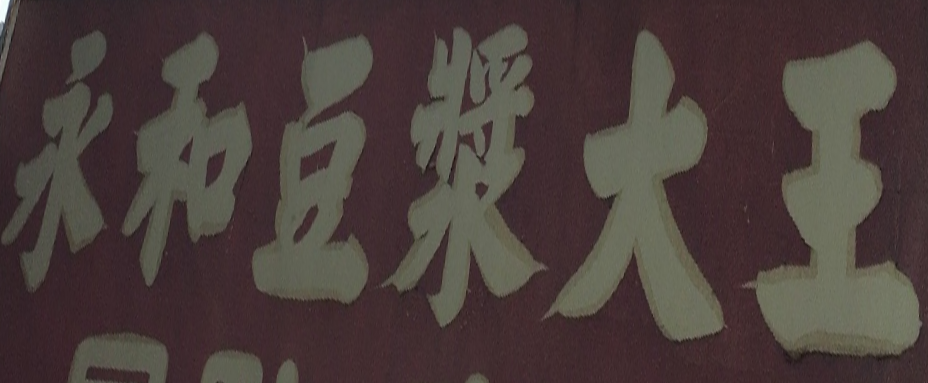 永和豆漿大王